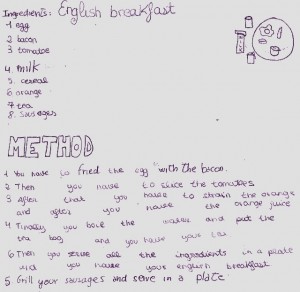 Ingredients: English breakfast
1 egg
2 bacon
3 tomatoe
4. milk
5. cereal
6 orange
7 tea
8 sausages
METHOD
1 You have to fried the egg with the bacon.
2 Then you have to slice the tomatoes
3 After that you have to strain the orange
and after you have the orange juice
4 Finally you boil the water and put the
tea bag and you have your tea
6 Then you serve all the ingredients in a plate
and you have your english breakfast
5. Grill your sausages and serve in a plate.